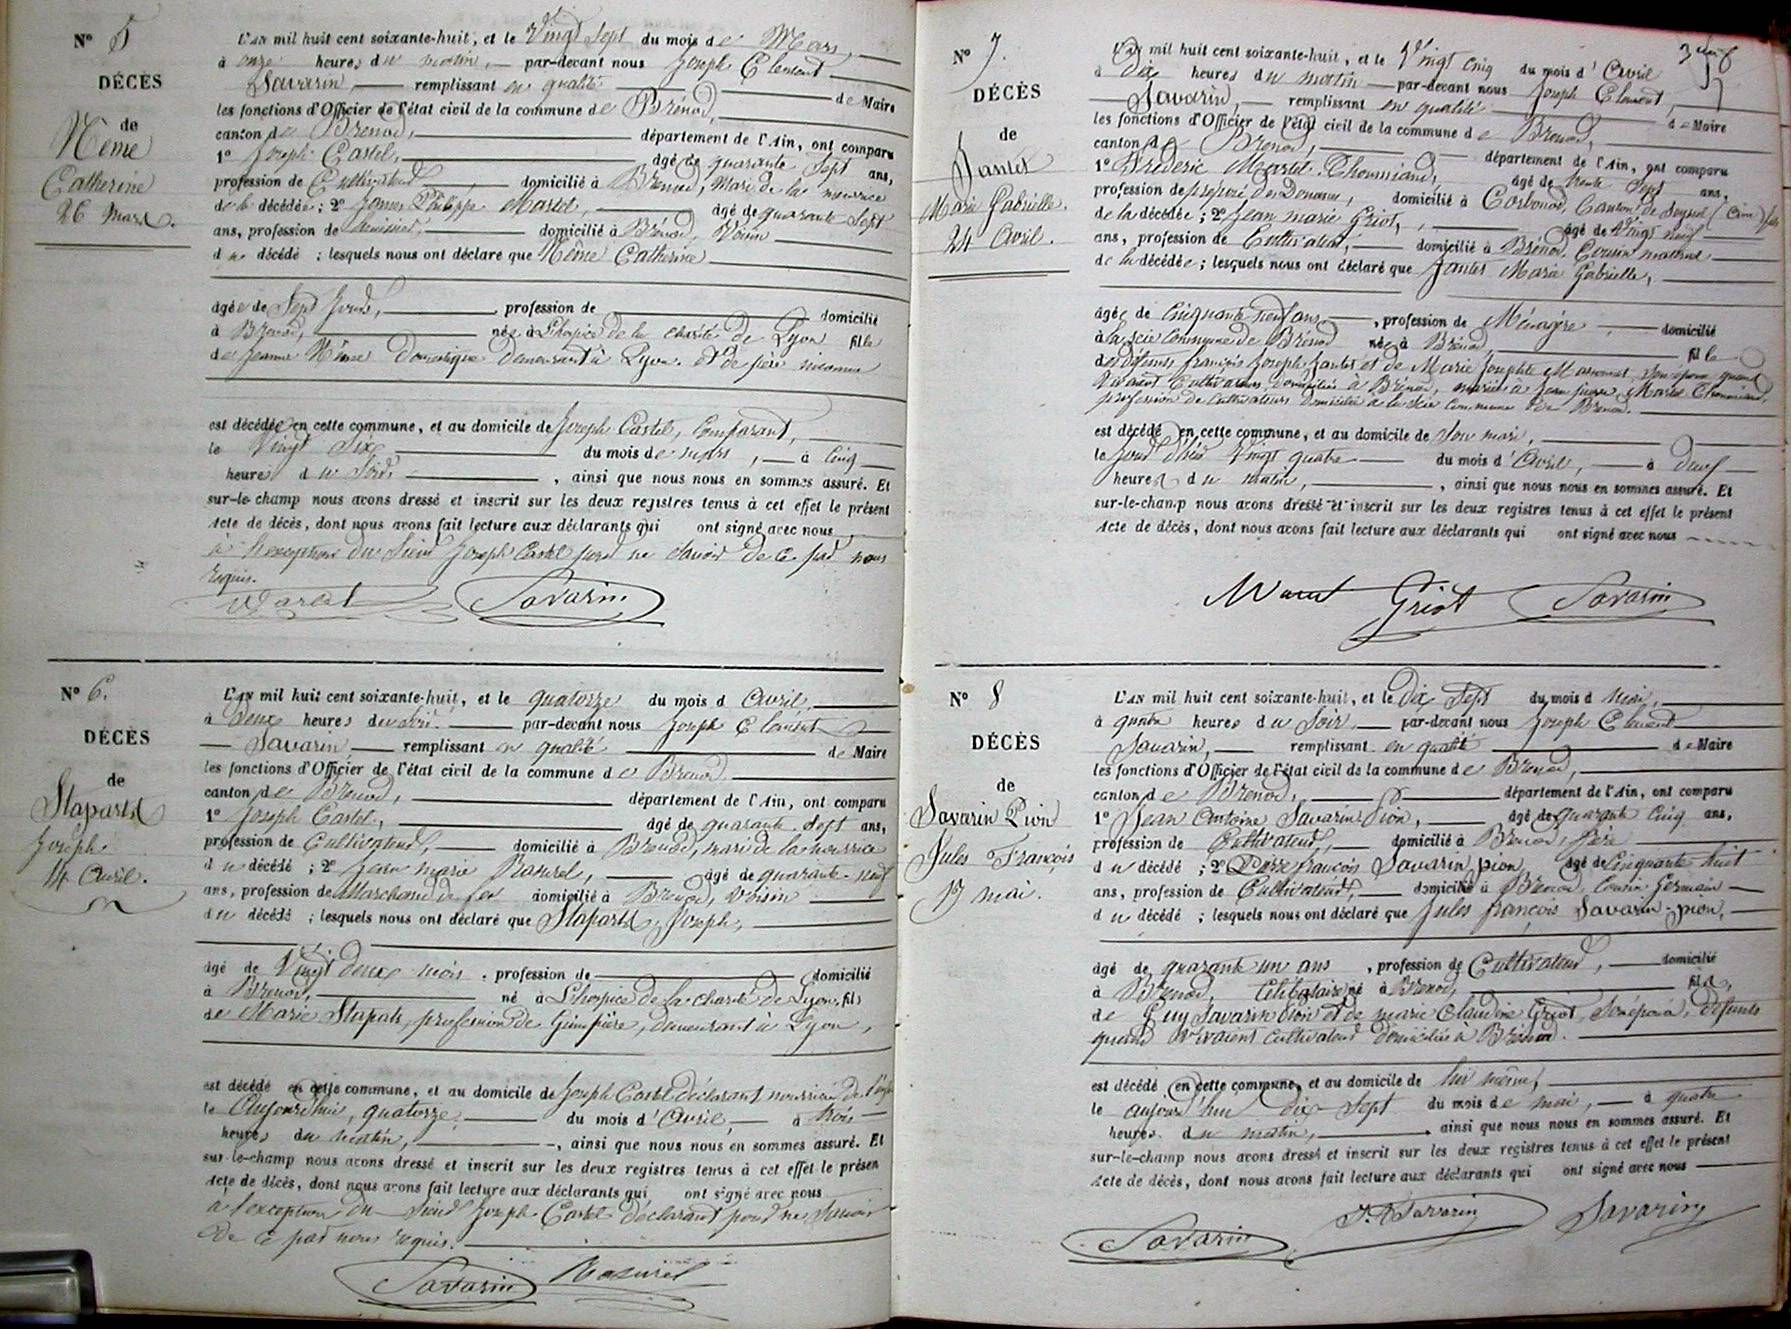 N° 5
DÉCÈS
de
Nême
Catherine
26 Mars.
L'AN mil huit cent soixante-huit, et le Vingt Sept du mois de Mars,
à onze heures du matin, par-devant nous Joseph Clement
Savarin, remplissant en qualité de Maire
les fonctions d'Officier de l'état civil de la commune de Brénod,
canton de Brenod, département de l'Ain, ont comparu
1° Joseph Castel, âgé de quarante Sept ans,
profession de Cultivateur domicilié à Brenod, mari de la nourrice
de la décédée ; 2° James Philippe Martel, âgé de quarante Sept
ans, profession de domicilié à Brénod, Voisin
d décédé ; lesquels nous ont déclaré que Nême Catherine
âgée de Sept Jours, profession de domicilié
à Brenod, née à L'hospice de la charité de Lyon fille
de Jeanne Nême Domestique demeurant à Lyon et de père inconnu
est décédée en cette commune, et au domicile de Joseph Castel, Comparant,
le Vingt Six du mois de mars, à Cinq
heures du Soir, ainsi que nous nous en sommes assuré. Et
sur-le-champ nous avons dressé et inscrit sur les deux registres tenus à cet effet le présent
Acte de décès, dont nous avons fait lecture aux déclarants qui ont signé avec nous
à l'exception du Sieur Joseph Castel pour ne Savoir de ce par nous
requis.
Savarin
N° 6.
DÉCÈS
de
Stapartz
Joseph
14 Avril.
L'AN mil huit cent soixante-huit, et le quatorze du mois d Avril,
à Deux heures du par-devant nous Joseph Clement
Savarin remplissant en qualité de Maire
les fonctions d'Officier de l'état civil de la commune de Brenod
canton de Brenod, département de l'Ain, ont comparu
1° Joseph Castel, âgé de quarante Sept ans,
profession de Cultivateur, domicilié à Brenod, mari de la nourrice
du décédé ; 2° Jean marie Rasurel, âgé de quarante-neuf
ans, profession de Marchand de fer domicilié à Brenod, Voisin
du décédé ; lesquels nous ont déclaré que Stapartz, Joseph,
âgé de Vingt deux mois, profession de domicilié
à Brenod, né à L'hospice de la charité de Lyon, fils
de Marie Stapartz, profession de Guimpière, demeurant à Lyon,
est décédé en cette commune, et au domicile de Joseph Castel déclarant nourricier de
le Aujourd'hui, quatorze du mois d'Avril, à trois
heures du matin, ainsi que nous nous en sommes assuré. Et
sur-le-champ nous avons dressé et inscrit sur les deux registres tenus à cet effet le présen
Acte de décès, dont nous avons fait lecture aux déclarants qui ont signé avec nous
à l'exception du Sieur Joseph Castel déclarant pour ne Savoir
de ce par nous requis.
Savarin Rasurel
N° 7.
DÉCÈS
de
Jantet
Marie Gabrielle.
24 Avril.
L'AN mil huit cent soixante-huit, et le Vingt cinq du mois d'Avril
à Dix heures du matin par-devant nous Joseph Clement,
Savarin, remplissant en qualité de Maire
les fonctions d'Officier de l'état civil de la commune de Brenod,
canton de Brenod, département de l'Ain, ont comparu
1° Fréderic Martel-Thoumiand, âgé de trente Sept ans,
profession de préposé des Douanes, domicilié à Corbonod, Canton de Seyssel (Ain) fils
de la décédée ; 2° Jean marie Griot, âgé de Vingt neuf
ans, profession de Cultivateur, domicilié à Brénod, Cousin maternel
de la décédée ; lesquels nous ont déclaré que Jantet Marie Gabrielle,
âgée de Cinquante neuf ans, profession de Ménagère domicilié
à la Scie commune de Brénod née à Brénod, fille
de défunts françois Joseph Jantet et de Marie Josephte son épouse quand
vivaient Cultivateurs, domiciliés à Brénod, mariée à Jean pierre Martel Thoumiand,
profession de Cultivateurs domicilié à la Scie Commune de Brenod.
est décédé en cette commune, et au domicile de Son mari,
le Jour d'hier Vingt quatre du mois d'Avril, à Deux
heures du matin, ainsi que nous nous en sommes assuré. Et
sur-le-champ nous avons dressé et inscrit sur les deux registres tenus à cet effet le présent
Acte de décès, dont nous avons fait lecture aux déclarants qui ont signé avec nous
Griot Savarin
N° 8
DÉCÈS
de
Savarin Pion
Jules François
17 mai.
L'AN mil huit cent soixante-huit, et le Dix Sept du mois d mai,
à quatre heures du Soir par-devant nous Joseph Clement
Savarin, remplissant en qualité de Maire
les fonctions d'Officier de l'état civil de la commune de Brenod,
canton de Brenod, département de l'Ain, ont comparu
1° Jean Antoine Savarin-Pion, âgé de quarante Cinq ans,
profession de Cultivateur, domicilié à Brenod, frère
du décédé ; 2° Pierre françois Savarin pion, âgé de Cinquante huit
ans, profession de Cultivateur, domicilié à Brenod, Cousin Germain
du décédé ; lesquels nous ont déclaré que Jules françois Savarin-pion,
âgé de quarante un ans, profession de Cultivateur, domicilié
à Brenod, Célibataire né à Brenod, fils,
de Guy Savarin Pion et de marie Claudine Griot, Son épouse, défunts
quand Vivaient Cultivateurs domiciliés à Brénod.
est décédé en cette commune, et au domicile de lui même,
le aujourd'hui dix Sept du mois de mai, à quatre
heures du matin, ainsi que nous nous en sommes assuré. Et
sur-le-champ nous avons dressé et inscrit sur les deux registres tenus à cet effet le présent
Acte de décès, dont nous avons fait lecture aux déclarants qui ont signé avec nous
Savarin J. A Savarin Savarin